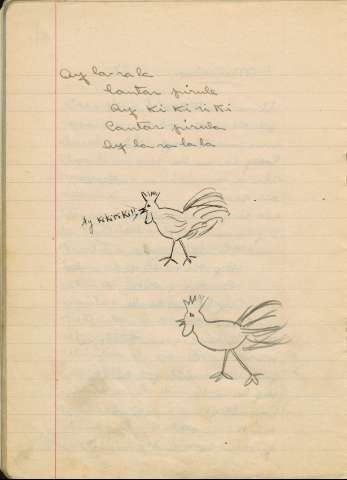 Ay la ra la
Cantar pirule
Ay Ki Ki ri Ki
Cantar pirula
Ay la ra la la
Ay KiKiriKi!!